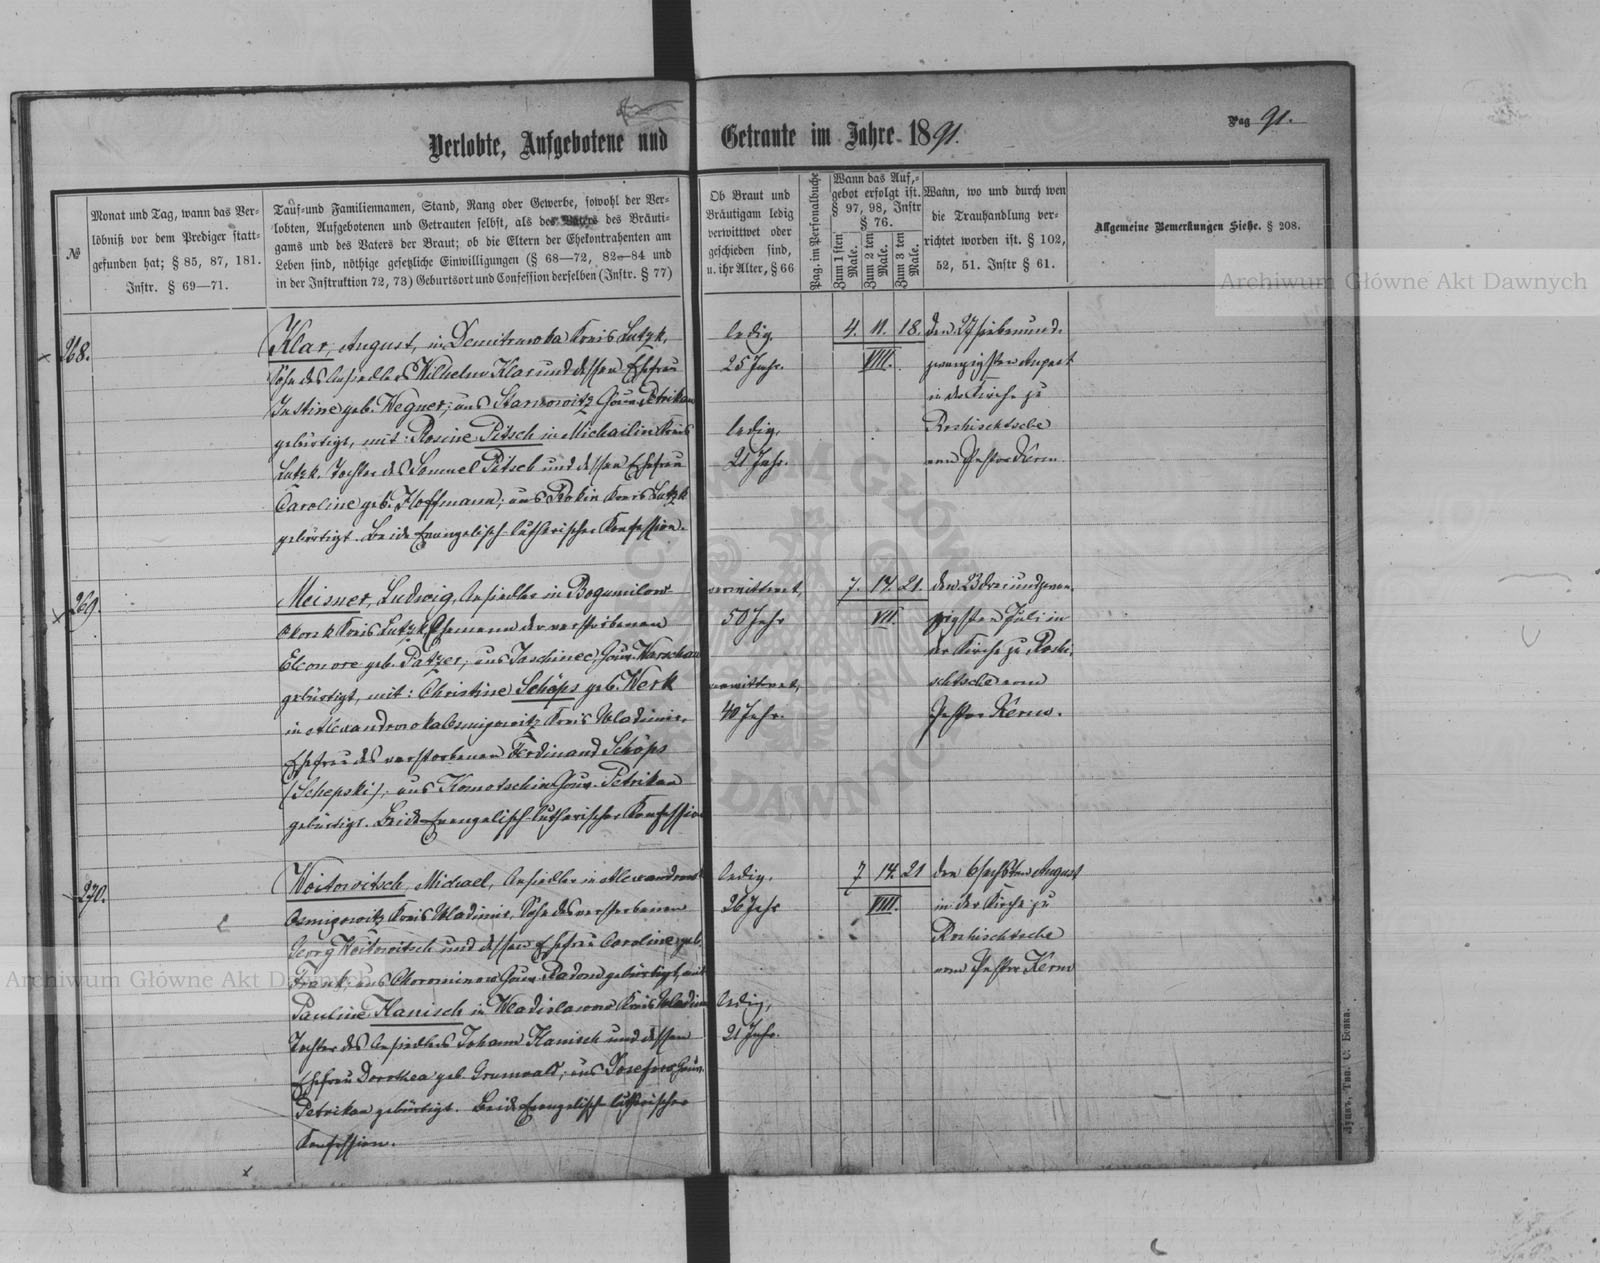 Verlobte, Aufgebotene und Getraute im Jahre 1891.
Pag 91.
№
Monat und Tag, wann das Ver-
löbniß vor dem Prediger statt-
gefunden hat; § 85, 87, 181.
Instr. § 69—71.
Tauf-und Familiennamen, Stand, Rang oder Gewerbe, sowohl der Ver-
lobten, Aufgebotenen und Getrauten selbst, als des Vaters des Bräuti-
gams und des Vaters der Braut; ob die Eltern der Ehekontrahenten am
Leben sind, nöthige gesetzliche Einwilligungen (§ 68—72, 82—84 und
in der Instruktion 72, 73) Geburtsort und Confession derselben (Instr. § 77)
Ob Braut und
Bräutigam ledig
verwittwet oder
geschieden sind,
u. ihr Alter, § 66
Pag. im Personalbuche
Wann das Auf-
gebot erfolgt ist.
§ 97, 98, Instr
§ 76.
Zum 1sten Male.
Zum 2 ten Male.
Zum 3 ten Male.
Wann, wo und durch wen
die Trauhandlung ver-
richtet worden ist. § 102,
52, 51. Instr § 61.
Allgemeine Bemerkungen Siehe. § 208.
268.
Klar, August, in Demitrowka Kreis Lutzk,
Sohn des Ansiedlers Wilhelm Klar und dessen Ehefrau
Justine geb. Wegner; aus Starowoitz Gouv. Petrikau
gebürtigt, mit: Rosine Pitsch in Michailin Kreis
Lutzk. Tochter des Samuel Pitsch und dessen Ehefrau
Caroline geb. Hoffmann; aus Rokin Kreis Lutzk
gebürtigt. Beide Evangelisch-lutherischer Konfession.
ledig.
25 Jahr.
ledig,
21 Jahr.
4. 11. 18.
VIII.
den 27 siebenund-
zwanzigsten August
in der Kirche zu
Roshischtsche
vom Pastor Kern
269.
Meisner, Ludwig, Ansiedler in Bogumilow
Kreis Lutzk Ehemann der verstorbenen
Eleonore geb. Patzer; aus Jaschinec Gouv. Warschau
gebürtigt, mit: Christine Schöps geb. Werk
in Alexandrowka Osmigowitz Kreis Wladimir,
Ehefrau des verstorbenen Ferdinand Schöps
(Schepski); aus Komotschin Gouv. Petrikau
gebürtigt. Beide Evangelisch-lutherischer Konfession
verwittwet,
50 Jahr
verwittwet,
40 Jahr.
7. 14. 21.
VII.
den 23 dreiundzwan-
zigsten Juli in
der Kirche zu Roshi-
schtsche vom
Pastor Kern.
270.
Woitowitsch, Michael, Ansiedler in Alexandrow
Osmigowitz Kreis Wladimir, Sohn des verstorbenen
Georg Woitowitsch und dessen Ehefrau Caroline geb.
Frank; aus Gouv. Radom gebürtigt, mit
Pauline Hanisch in Wladislawow Kreis Wladimir
Tochter des Ansiedlers Johann Hanisch und dessen
Ehefrau Dorothea geb. Grunwald; aus Josefow Gouv.
Petrikau gebürtigt. Beide Evangelisch-lutherischer
Konfession.
ledig.
26 Jahr
ledig,
21 Jahr.
7 14. 21
VIII.
den 6 sechsten August
in der Kirche zu
Roshischtsche
vom Pastor Kern
Archiwum Główne Akt Dawnych
Archiwum Główne Akt Dawnych